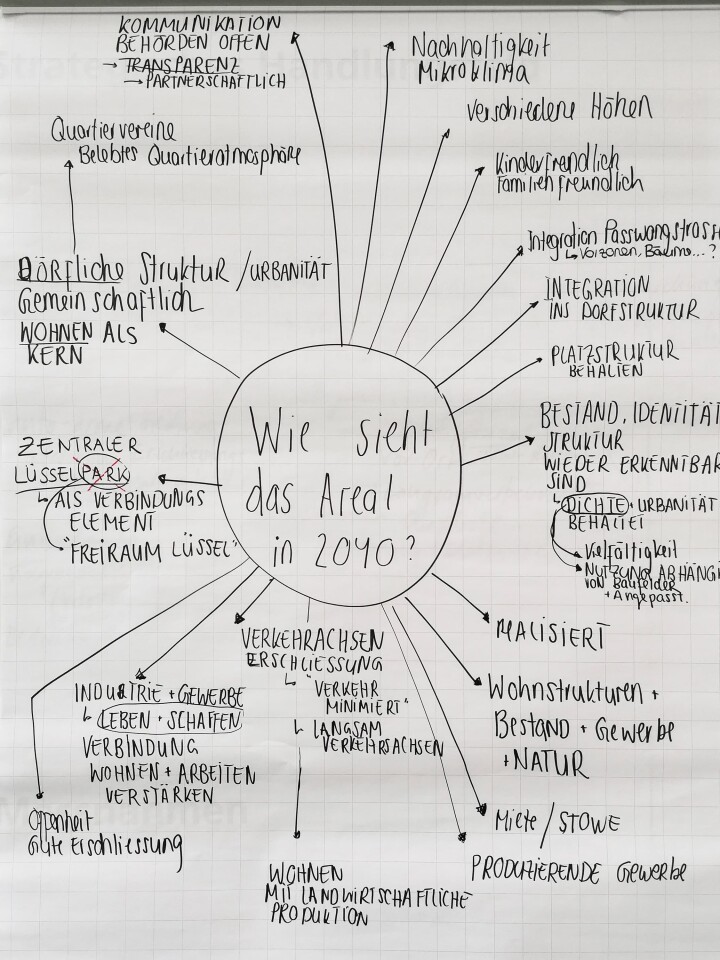 KOMMUNIKATION
BEHÖRDEN OFFEN
→ TRANSPARENZ
→ PARTNERSCHAFTLICH
Nachhaltigkeit
Mikroklima
verschiedene Höhen
Quartiervereine
Belebtes Quartieratmosphäre
Kinderfreundlich
Familienfreundlich
Integration Passwangstrass
↳ Vorzonen, Bäume...?
DÖRFLICHE Struktur / URBANITÄT
Gemeinschaftlich
WOHNEN ALS
KERN
INTEGRATION
INS DORFSTRUKTUR
PLATZSTRUKTUR
BEHALTEN
Wie sieht
das Areal
in 2040?
BESTAND, IDENTITÄT
STRUKTUR
WIEDER ERKENNTBAR
SIND
↳ DICHTE + URBANITÄT
BEHALTEN
Vielfältigkeit
NUTZUNG ABHÄNGI
von Baufelder
+ Angepasst.
ZENTRALER
LÜSSELPARK
↳ ALS VERBINDUNGS
ELEMENT
"FREIRAUM LÜSSEL"
REALISIERT
VERKEHRACHSEN
ERSCHLIESSUNG
↳ "VERKEHR
MINIMIERT"
↳ LANGSAM
VERKEHRSACHSEN
INDUSTRIE + GEWERBE
↳ LEBEN + SCHAFFEN
VERBINDUNG
WOHNEN + ARBEITEN
VERSTÄRKEN
Wohnstrukturen +
Bestand + Gewerbe
+ NATUR
Offenheit
Gute Erschliessung
Miete / STOWE
PRODUZIERENDE Gewerbe
WOHNEN
MIT LANDWIRTSCHAFTLICHE
PRODUKTION